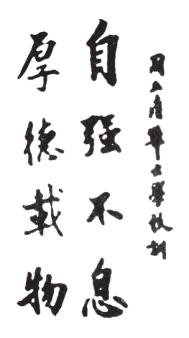 国立清華大學校训
自强不息
厚德載物